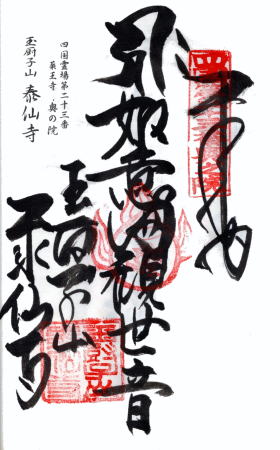 奉拝
如意輪観世音
玉厨子山
泰仙寺
四国霊場第二十三番
薬王寺・奥の院
玉厨子山 泰仙寺